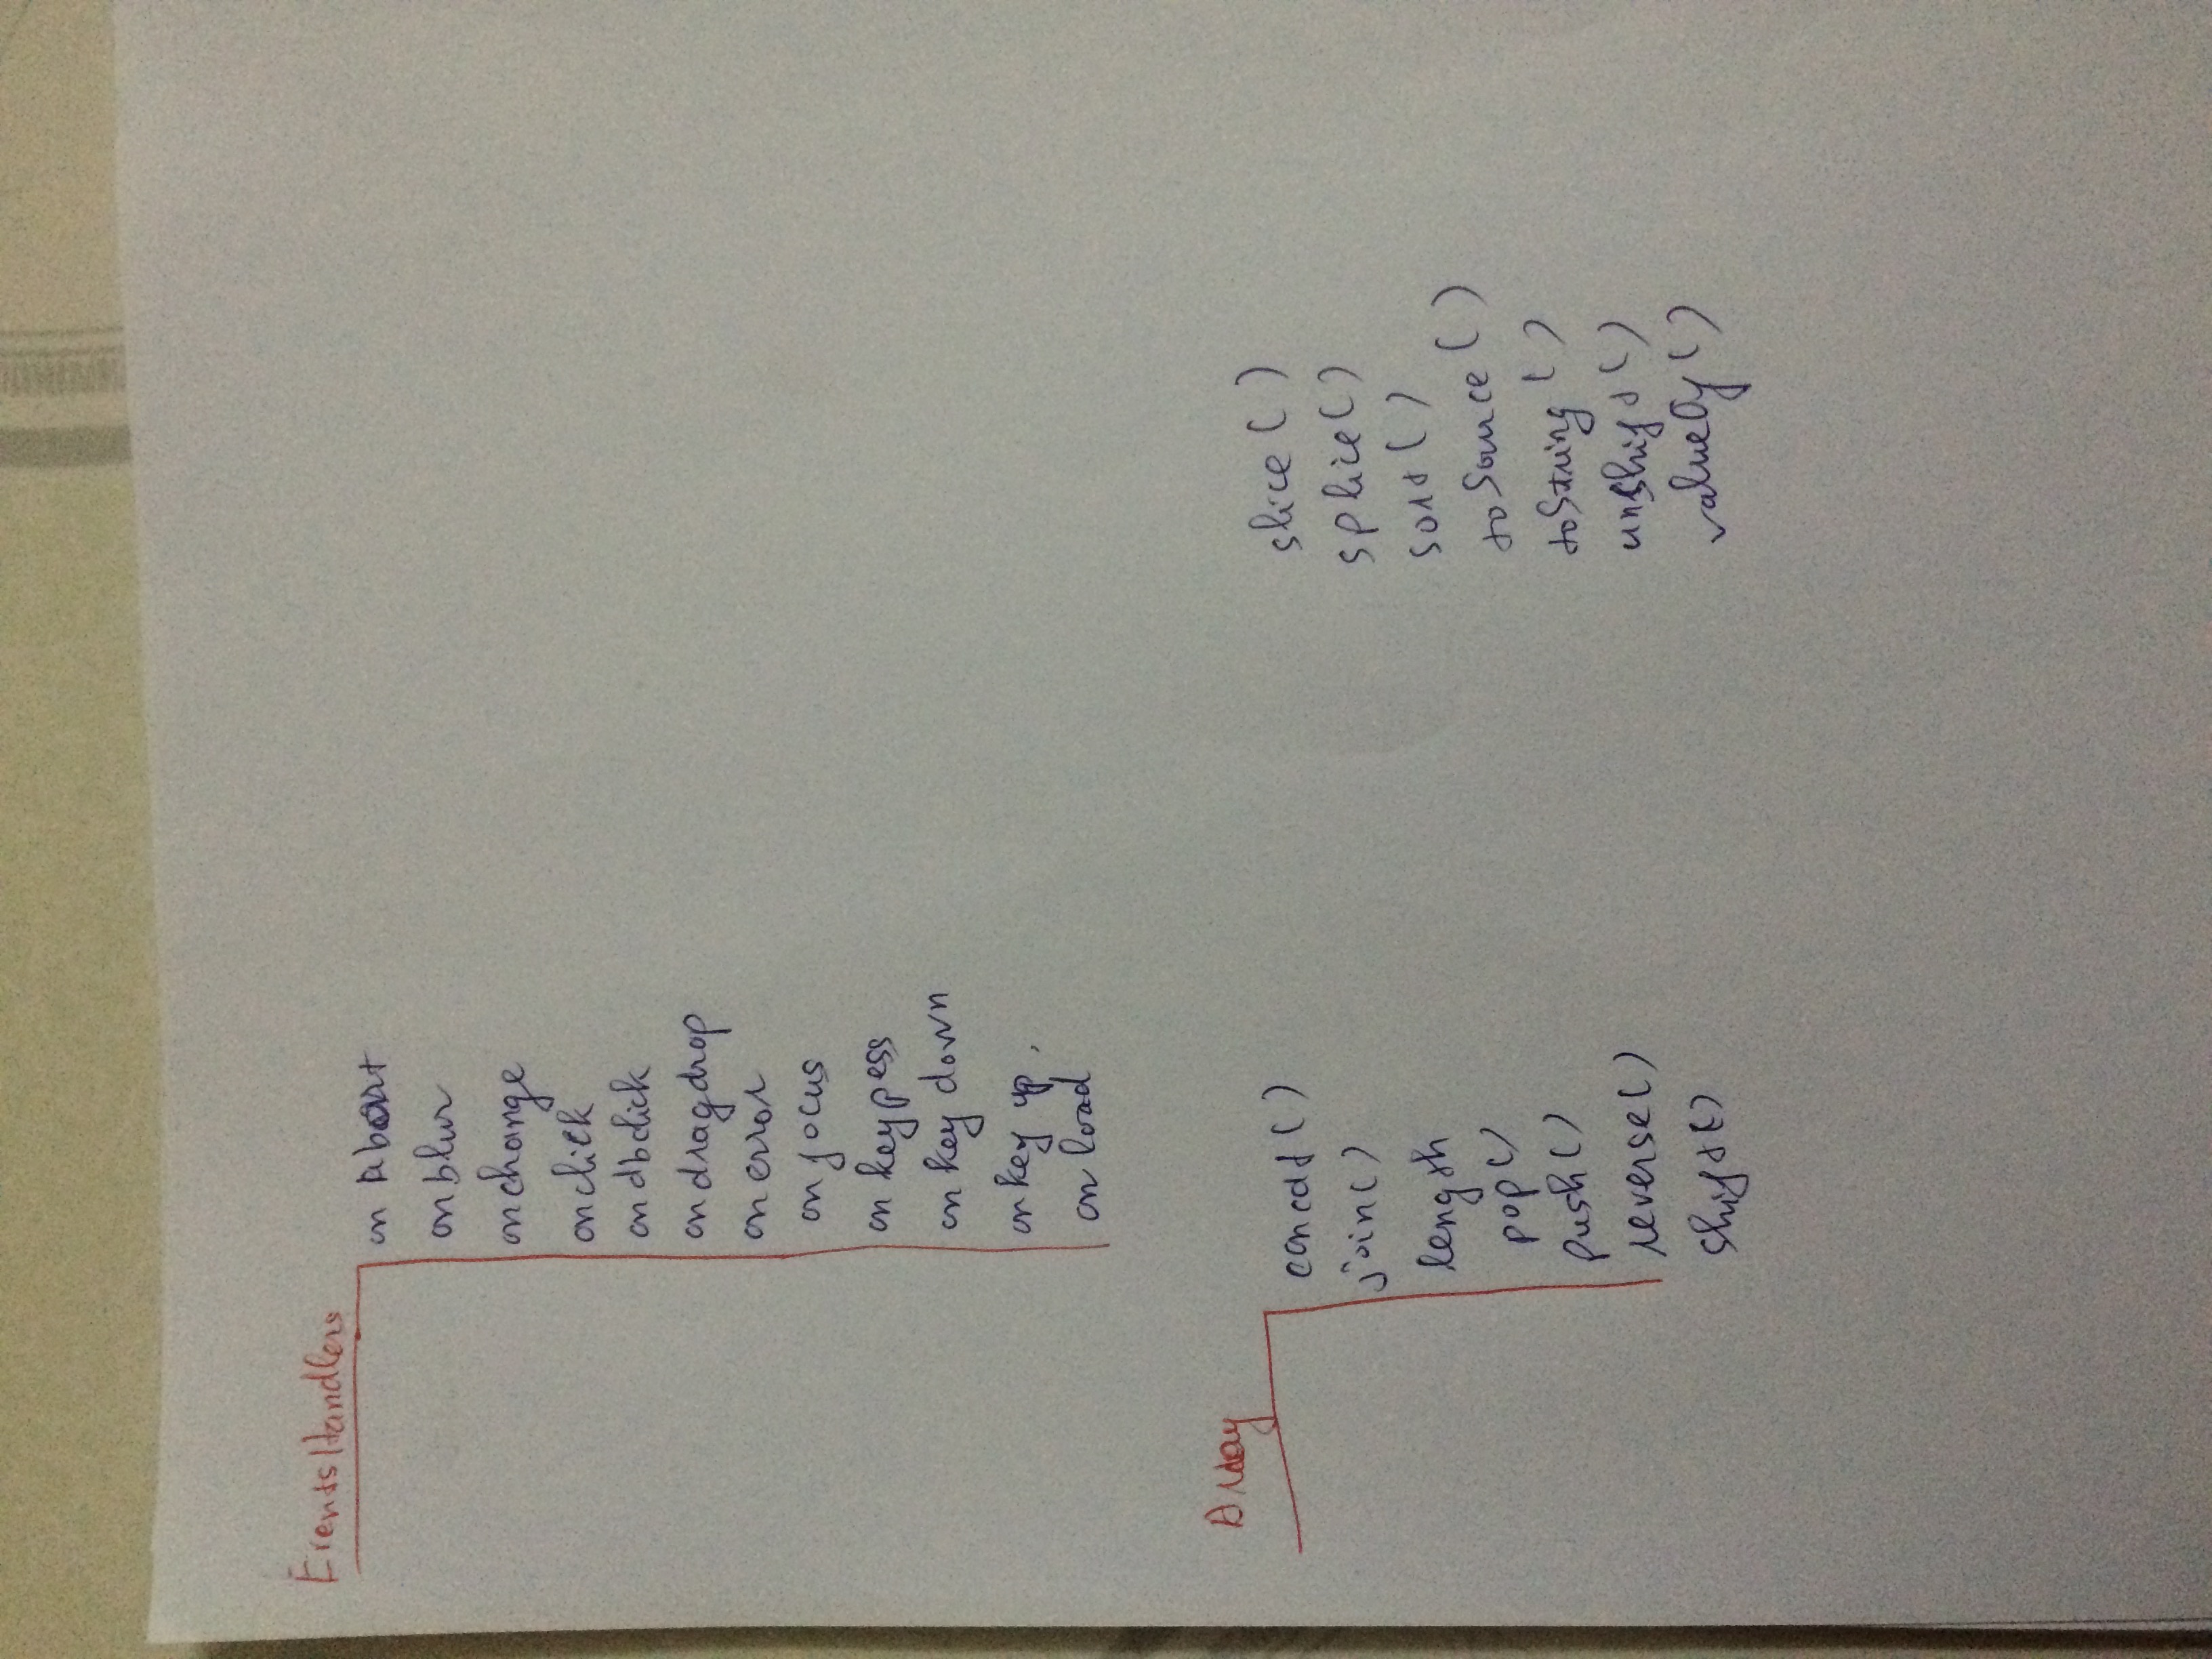 EventsHandlers
on Abort
onblur
onchange
onclick
on dbclick
on dragdrop
on error
on focus
on keypess
on key down
on key up.
on load
Array
concat()
join()
length
pop()
push()
reverse()
shift()
slice()
splice()
sort()
toSource()
toString()
unshift()
valueOf()